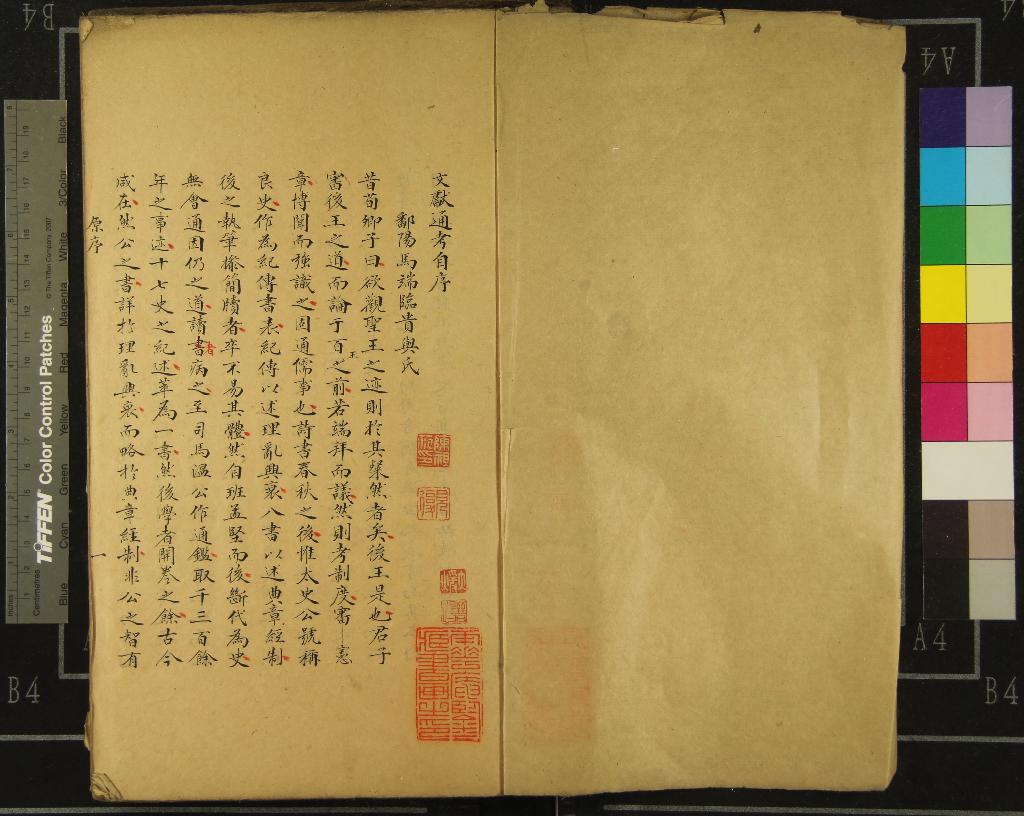 文獻通考自序
鄱陽馬端臨貴與氏
昔荀卿子曰欲觀聖王之迹則於其粲然者矣後王是也君子
審後王之道而論于百之前若端拜而議然則考制度審憲
王
章博聞而強識之固通儒事也詩書春秋之後惟太史公號稱
良史作為紀傳書表紀傳以述理亂興衰八書以述典章經制
後之執筆操簡牘者卒不易其體然自班孟堅而後斷代為史
無會通因仍之道讀書病之至司馬溫公作通鑑取千三百餘
者
年之事迹十七史之紀述萃為一書然後學者開卷之餘古今
咸在然公之書詳於理亂興衰而略於典章經制非公之智有
原序
一
B4
A4
A4
B4
TIFFEN Color Control Patches
© The Tiffen Company, 2007
Inches
Centimetres
Blue
Cyan
Green
Yellow
Red
Magenta
White
3/Color
Black